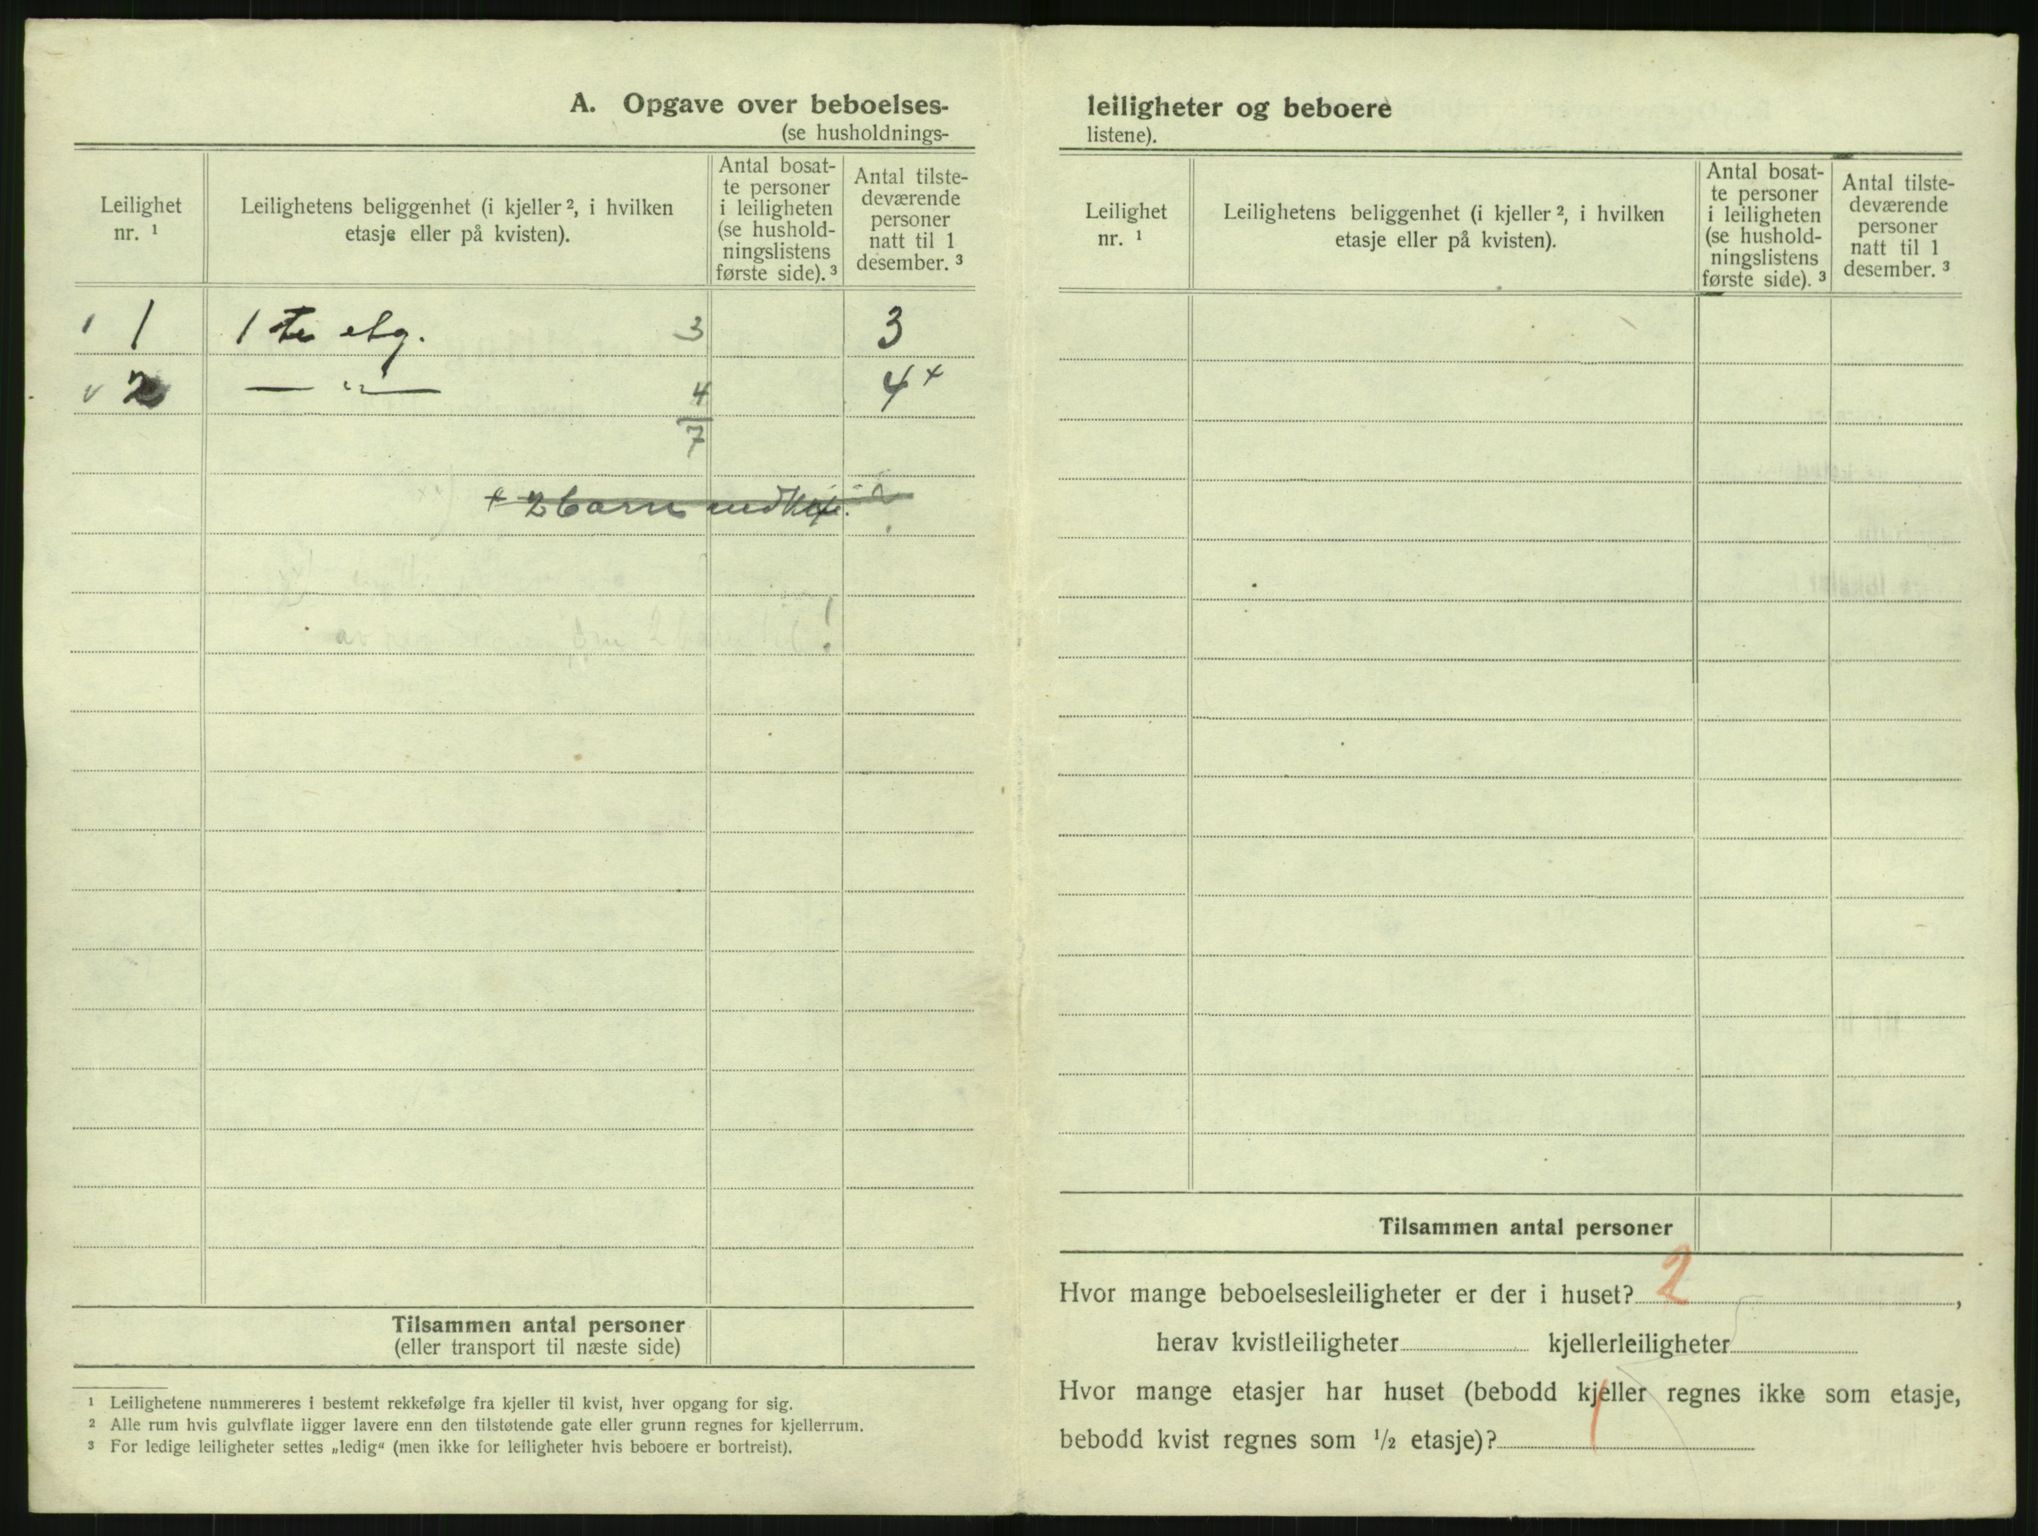 A. Opgave over beboelses-
(se husholdnings-
Leilighet
nr. ¹
Leilighetens beliggenhet (i kjeller ², i hvilken
etasje eller på kvisten).
Antal bosat-
te personer
i leiligheten
(se hushold-
ningslistens
første side). ³
Antal tilste-
deværende
personer
natt til 1
desember. ³
1 1ste etg. 3 3
v 2 — " — 4 4 +
7
+ 2 barn
2 barn
Tilsammen antal personer
(eller transport til næste side)
¹ Leilighetene nummereres i bestemt rekkefølge fra kjeller til kvist, hver opgang for sig.
² Alle rum hvis gulvflate ligger lavere enn den tilstøtende gate eller grunn regnes for kjellerrum.
³ For ledige leiligheter settes „ledig“ (men ikke for leiligheter hvis beboere er bortreist).
leiligheter og beboere
listene).
Leilighet
nr. ¹
Leilighetens beliggenhet (i kjeller ², i hvilken
etasje eller på kvisten).
Antal bosat-
te personer
i leiligheten
(se hushold-
ningslistens
første side). ³
Antal tilste-
deværende
personer
natt til 1
desember. ³
Tilsammen antal personer
Hvor mange beboelsesleiligheter er der i huset? 2 ,
herav kvistleiligheter kjellerleiligheter
Hvor mange etasjer har huset (bebodd kjeller regnes ikke som etasje,
bebodd kvist regnes som ½ etasje)? 1